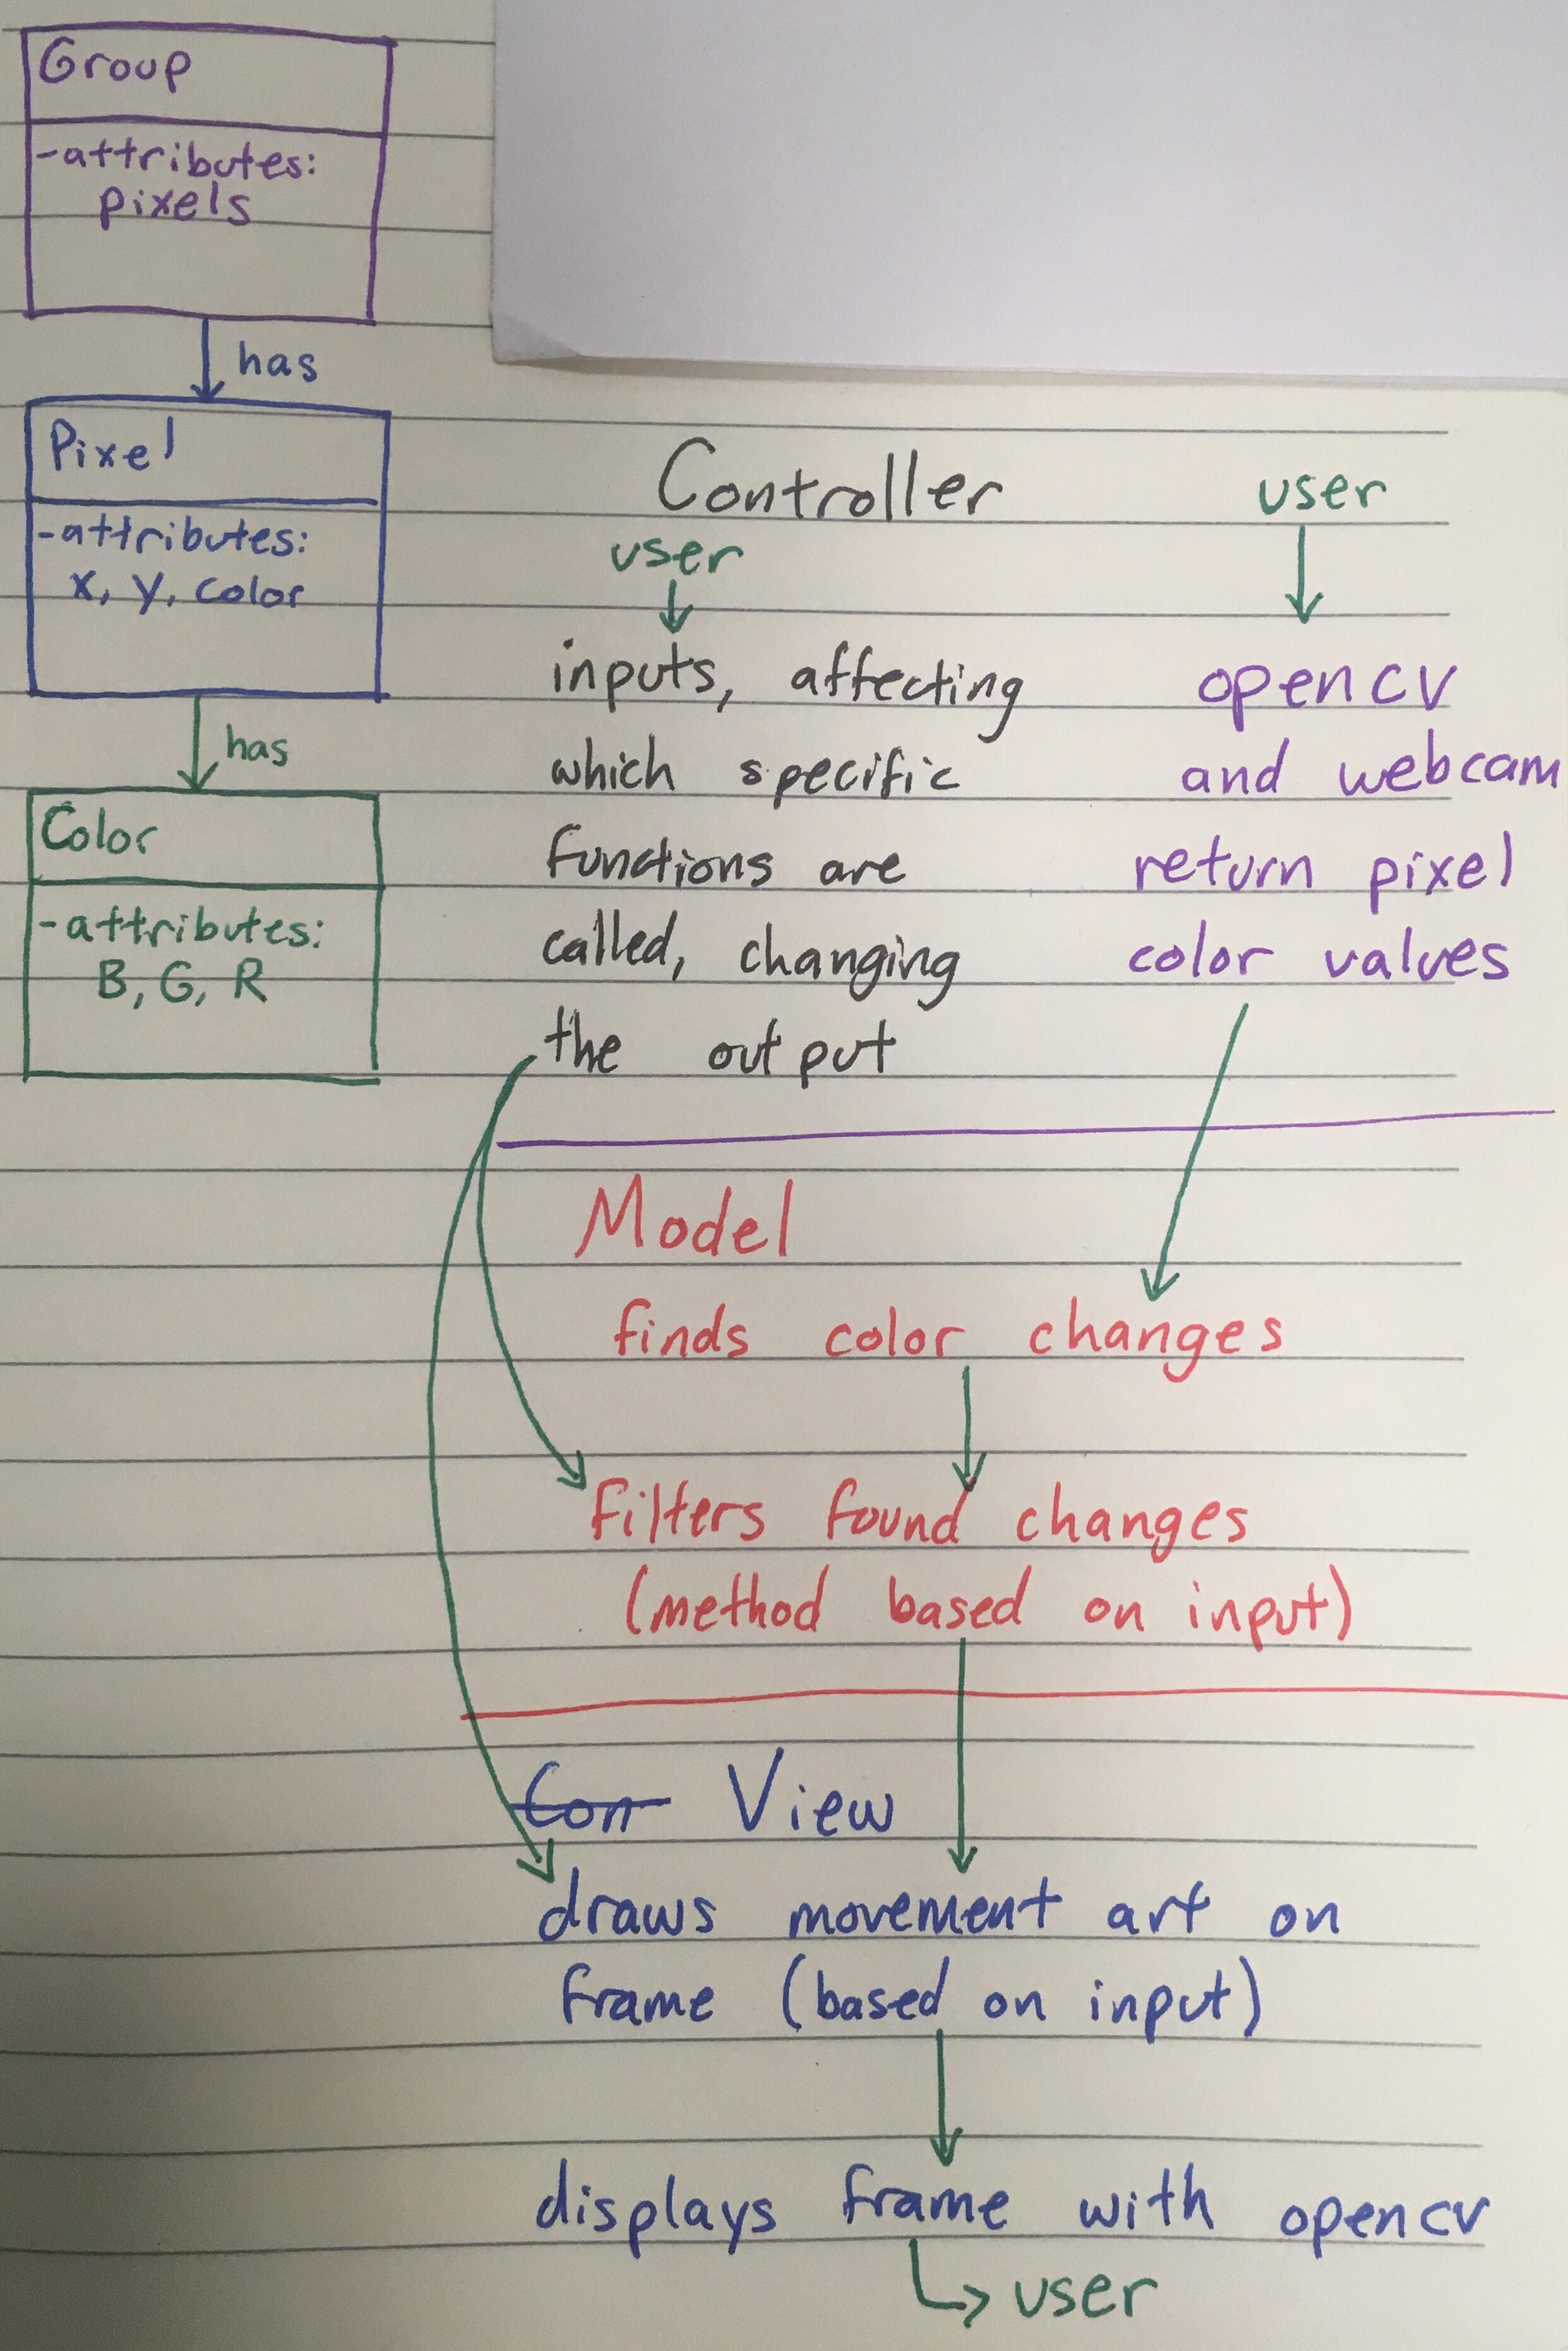 Group
-attributes:
pixels
has
Pixel
-attributes:
x, y, color
has
Color
-attributes:
B, G, R
Controller
user
inputs, affecting
which specific
functions are
called, changing
the output
user
opencv
and webcam
return pixel
color values
Model
finds color changes
filters found changes
(method based on input)
Con View
draws movement art on
frame (based on input)
displays frame with opencv
user